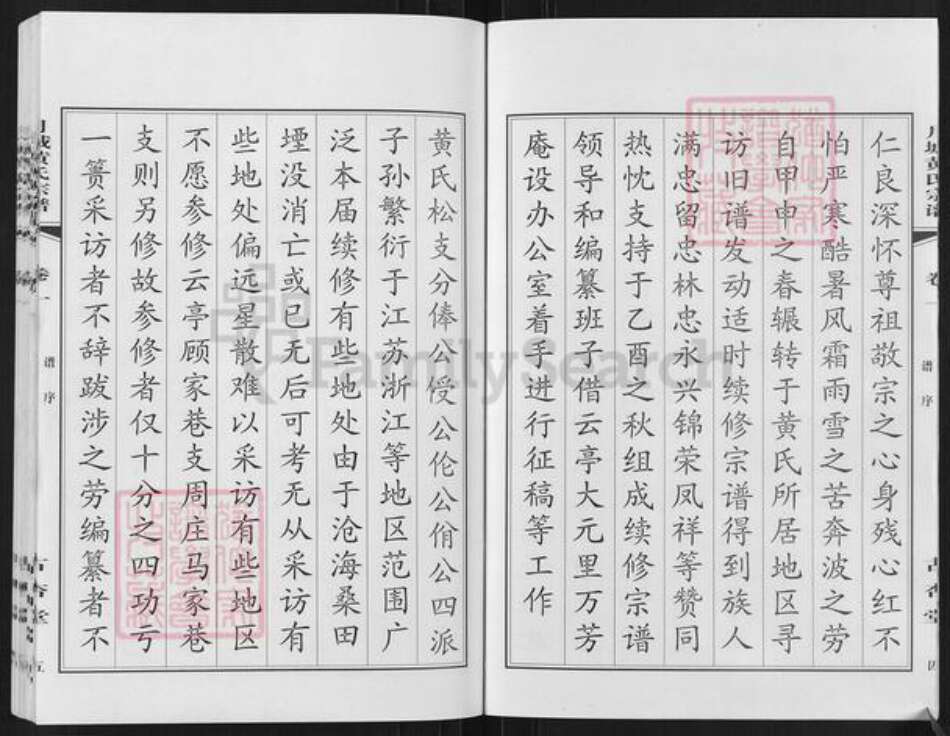 仁良深怀尊祖敬宗之心身残心红不
怕严寒酷暑风霜雨雪之苦奔波之劳
自甲申之春辗转于黄氏所居地区寻
访旧谱发动适时续修宗谱得到族人
满忠留忠林忠永兴锦荣凤祥等赞同
热忱支持于乙酉之秋组成续修宗谱
领导和编纂班子借云亭大元里万芳
庵设办公室着手进行征稿等工作
卷一
谱序
四
黄氏松支分俸公㑓公伦公佾公四派
子孙繁衍于江苏浙江等地区范围广
泛本届续修有些地处由于沧海桑田
堙没消亡或已无后可考无从采访有
些地处偏远星散难以采访有些地区
不愿参修云亭顾家巷支周庄马家巷
支则另修故参修者仅十分之四功亏
一篑采访者不辞跋涉之劳编纂者不
黄氏宗谱
卷一
谱序
五
FamilySearch